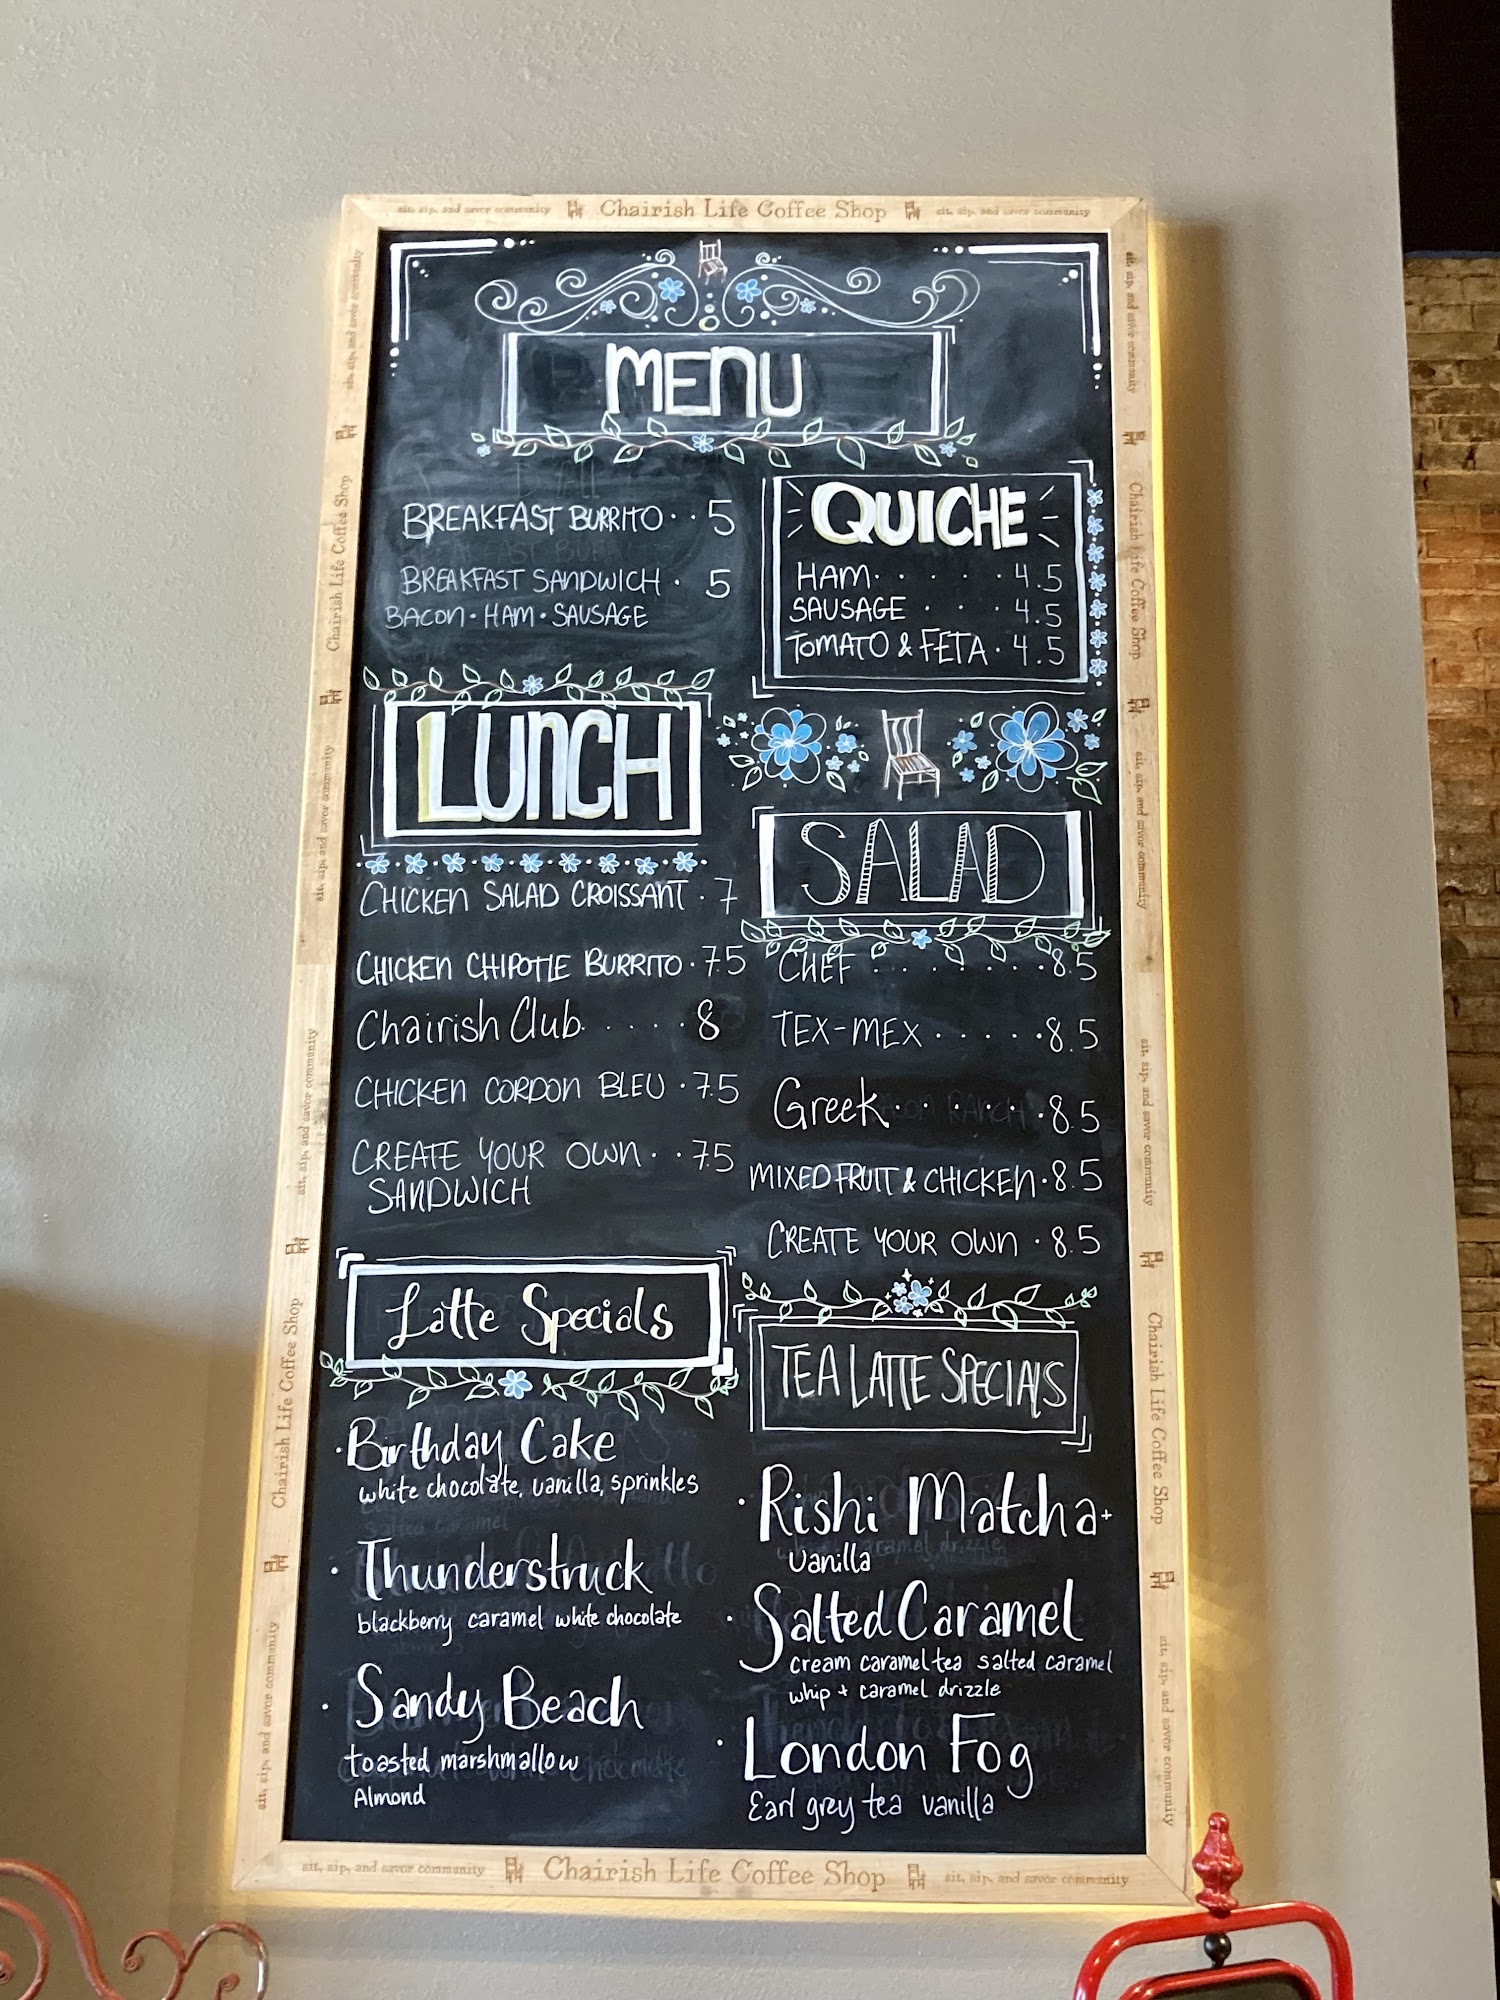 sit, sip, and savor community Chairish Life Coffee Shop sit, sip, and savor community
MENU
BREAKFAST BURRITO · · 5
BREAKFAST SANDWICH · 5
BACON · HAM · SAUSAGE
QUICHE
HAM · · · · · 4.5
SAUSAGE · · · 4.5
TOMATO & FETA · 4.5
LUNCH
CHICKEN SALAD CROISSANT · 7
CHICKEN CHIPOTLE BURRITO · 7.5
Chairish Club · · · · · 8
CHICKEN CORDON BLEU · 7.5
CREATE YOUR OWN · · 7.5
SANDWICH
SALAD
CHEF · · · · · · · 8.5
TEX-MEX · · · · · 8.5
Greek · · · · · 8.5
MIXED FRUIT & CHICKEN · 8.5
CREATE YOUR OWN · 8.5
Latte Specials
· Birthday Cake
white chocolate, vanilla, sprinkles
· Thunderstruck
blackberry caramel white chocolate
· Sandy Beach
toasted marshmallow
Almond
TEA LATTE SPECIALS
· Rishi Matcha +
vanilla
· Salted Caramel
cream caramel tea salted caramel
whip + caramel drizzle
· London Fog
Earl grey tea vanilla
sit, sip, and savor community Chairish Life Coffee Shop sit, sip, and savor community
sit, sip, and savor community
Chairish Life Coffee Shop
sit, sip, and savor community
sit, sip, and savor community
Chairish Life Coffee Shop
sit, sip, and savor community
sit, sip, and savor community
Chairish Life Coffee Shop
sit, sip, and savor community
sit, sip, and savor community
Chairish Life Coffee Shop
sit, sip, and savor community